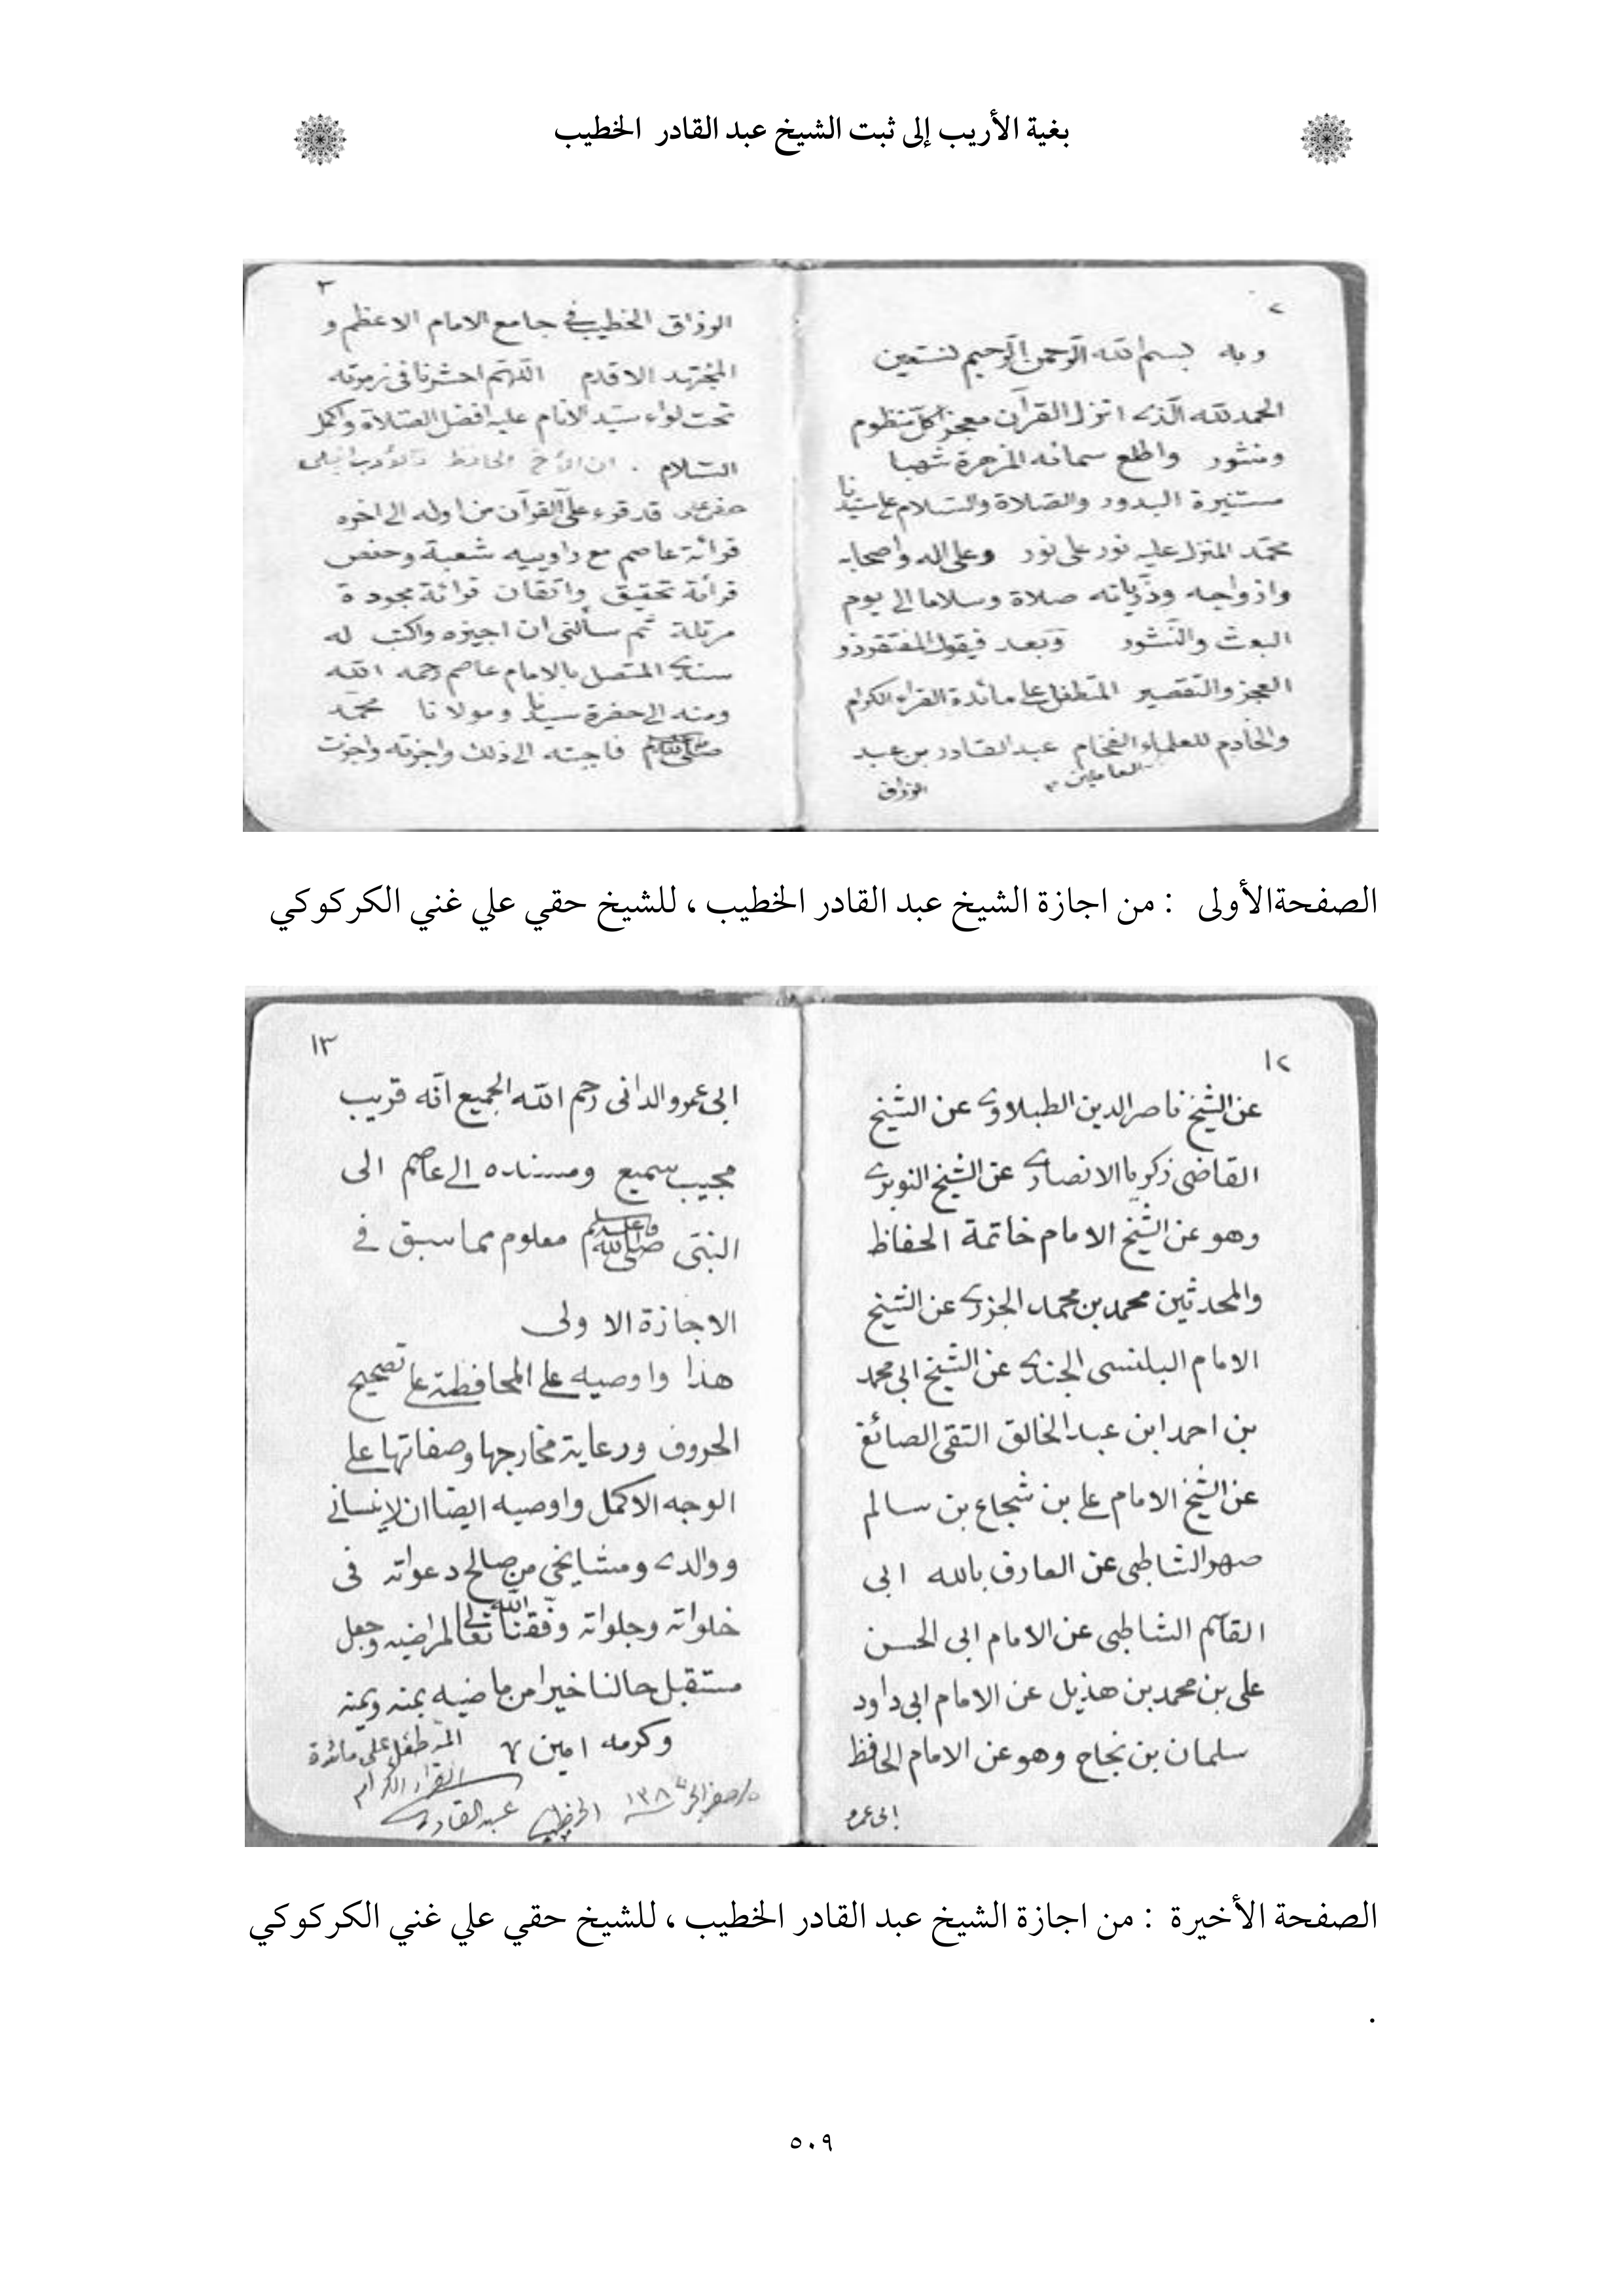 بغية الأريب إلى ثبت الشيخ عبد القادر الخطيب
٢
وبه بسم الله الرحمن الرحيم نستعين
الحمد لله الذي انزل القرآن معجزا كل منظوم
ومنثور واطلع سمائه المزهرة شهبا
مستنيرة البدور والصلاة والسلام على سيدنا
محمد المنزل عليه نور على نور وعلى اله واصحابه
وازواجه وذرياته صلاة وسلاما الى يوم
البعث والنشور وبعد فيقول المفتقر ذو
العجز والتقصير المتطفل على مائدة القراء الكرام
والخادم للعلماء الفخام عبد القادر بن عبد
العاملين
الرزاق
٣
الرزاق الخطيب في جامع الامام الاعظم و
المجتهد الاقدم اللهم احشرنا في زمرته
تحت لواء سيد الانام عليه افضل الصلاة واكمل
السلام . ان الأخ الحافظ
قد قرء على القرآن من اوله الى اخره
قرائة عاصم مع راوييه شعبة وحفص
قرائة تحقيق واتقان قرائة مجودة
مرتلة ثم سألني ان اجيزه واكتب له
سندي المتصل بالامام عاصم رحمه الله
ومنه الى حضرة سيدنا ومولانا محمد
صلى الله عليه وسلم فاجبته الى ذلك واجزته واجزت
الصفحةالأولى : من اجازة الشيخ عبد القادر الخطيب ، للشيخ حقي علي غني الكركوكي
١٢
عن الشيخ ناصر الدين الطبلاوي عن الشيخ
القاضي زكريا الانصاري عن الشيخ النويري
وهو عن الشيخ الامام خاتمة الحفاظ
والمحدثين محمد بن محمد الجزري عن الشيخ
الامام البلنسي الجندي عن الشيخ ابي محمد
بن احمد ابن عبد الخالق التقي الصائغ
عن الشيخ الامام علي بن شجاع بن سالم
صهر الشاطبي عن العارف بالله ابي
القاسم الشاطبي عن الامام ابي الحسن
على بن محمد بن هذيل عن الامام ابي داود
سلمان بن نجاح وهو عن الامام الحافظ
ابي عمرو
١٣
ابي عمرو الداني رحم الله الجميع آنه قريب
مجيب سميع ومسنده الى عاصم الى
النبي صلى الله عليه وسلم معلوم مما سبق في
الاجازة الاولى
هذا واوصيه على المحافظة على تصحيح
الحروف ورعاية مخارجها وصفاتها على
الوجه الاكمل واوصيه ايضا ان لاينساني
ووالدي ومشايخي من صالح دعواته في
خلواته وجلواته وفقنا الله تعالى لمراضيه وجعل
مستقبل حالنا خيرا من ماضيه بمنه ويمنه
وكرمه امين
المتطفل على مائدة
القراء الكرام
عبد القادر الخطيب
صفر الخير ١٣٨
الصفحة الأخيرة : من اجازة الشيخ عبد القادر الخطيب ، للشيخ حقي علي غني الكركوكي
.
٥٠٩